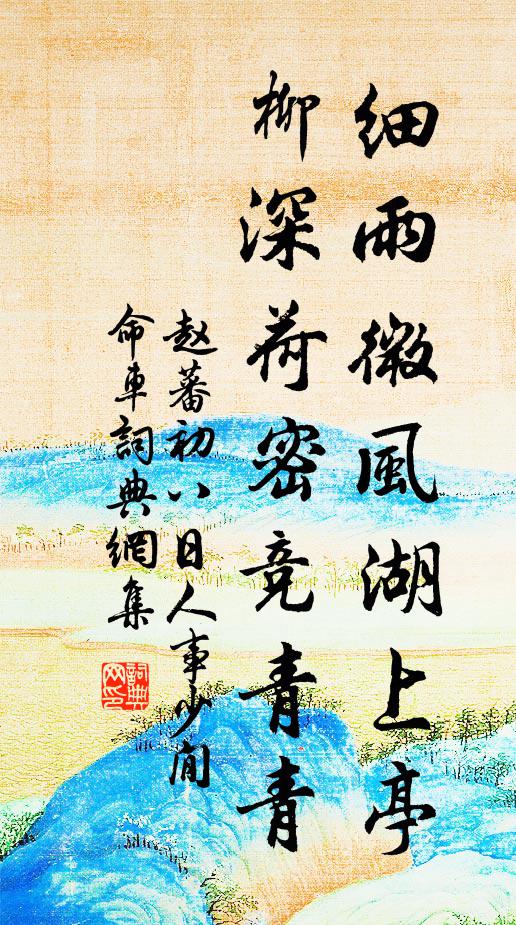 細雨微風湖上亭
柳深荷密竞青青
赵蕃初八日人事少閒
命車詞典網集
詞典
网印